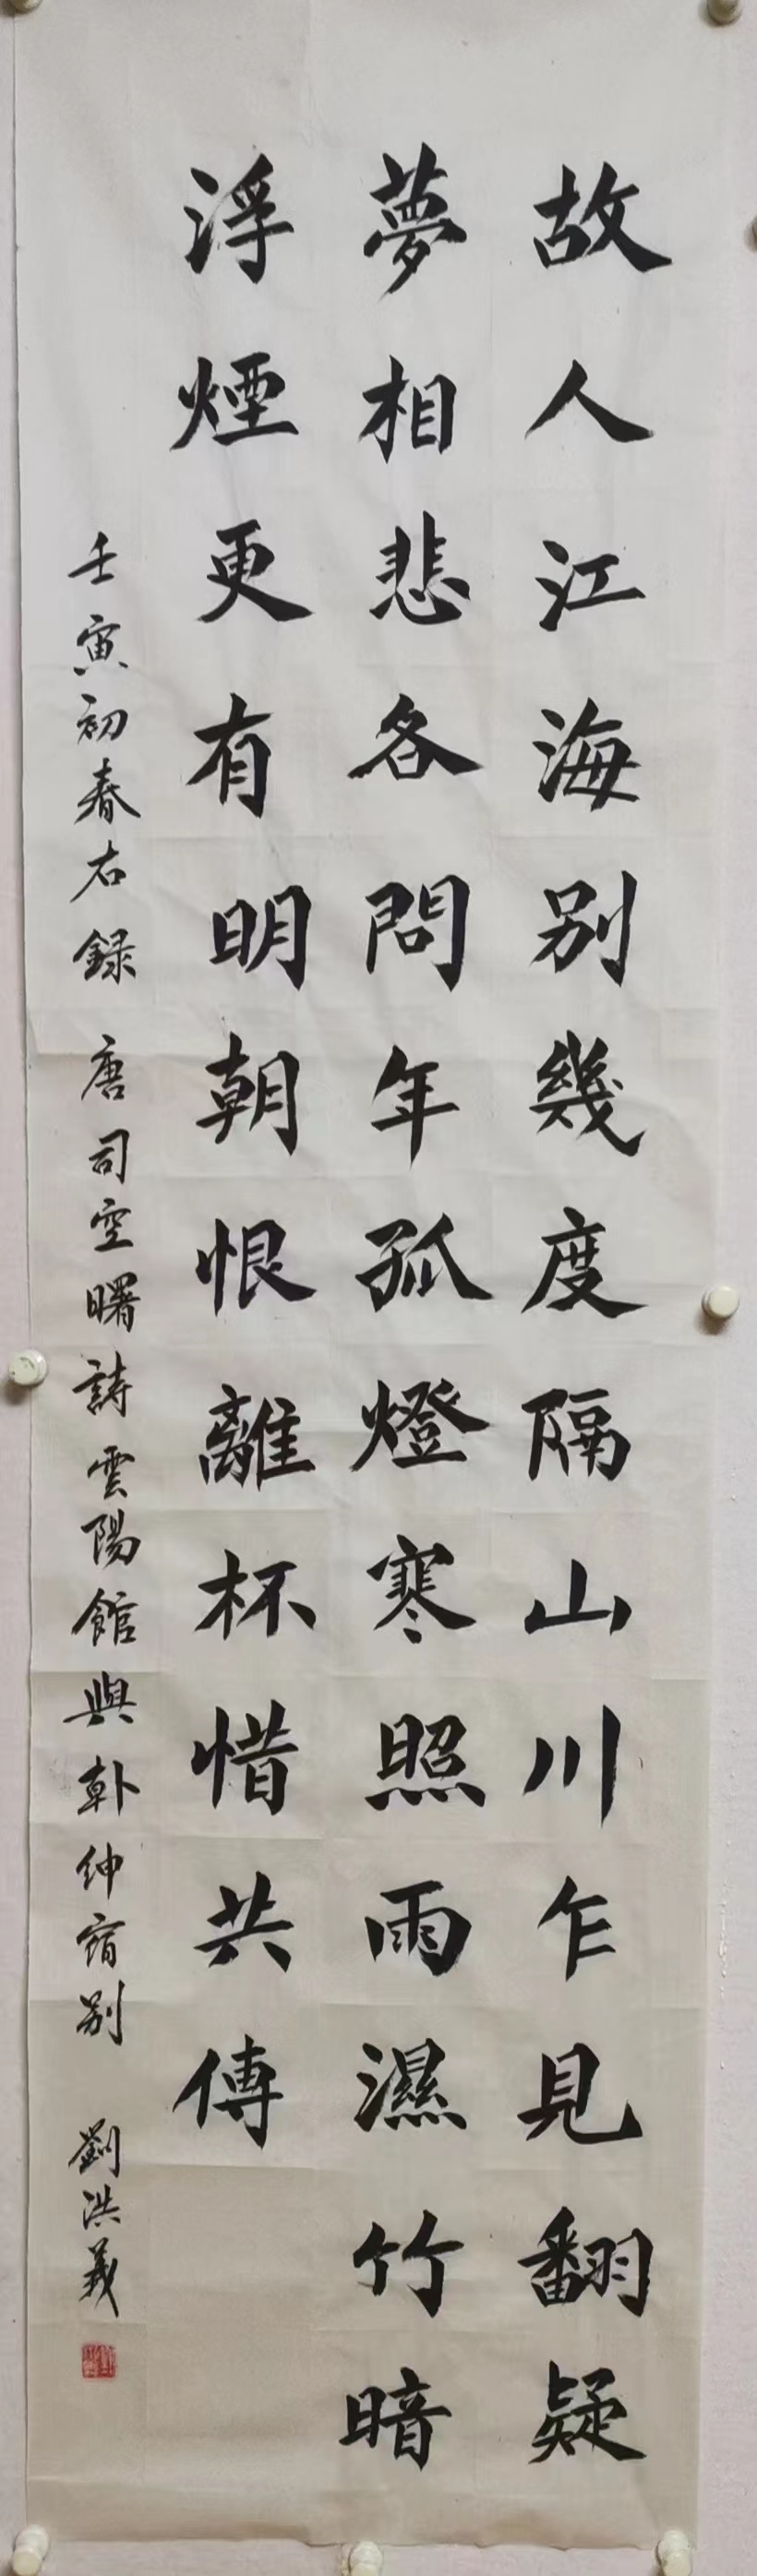 故人江海別幾度隔山川乍見翻疑
夢相悲各問年孤燈寒照雨濕竹暗
浮煙更有明朝恨離杯惜共傳
壬寅初春右録 唐司空曙詩雲陽館與韩紳宿别 劉洪義